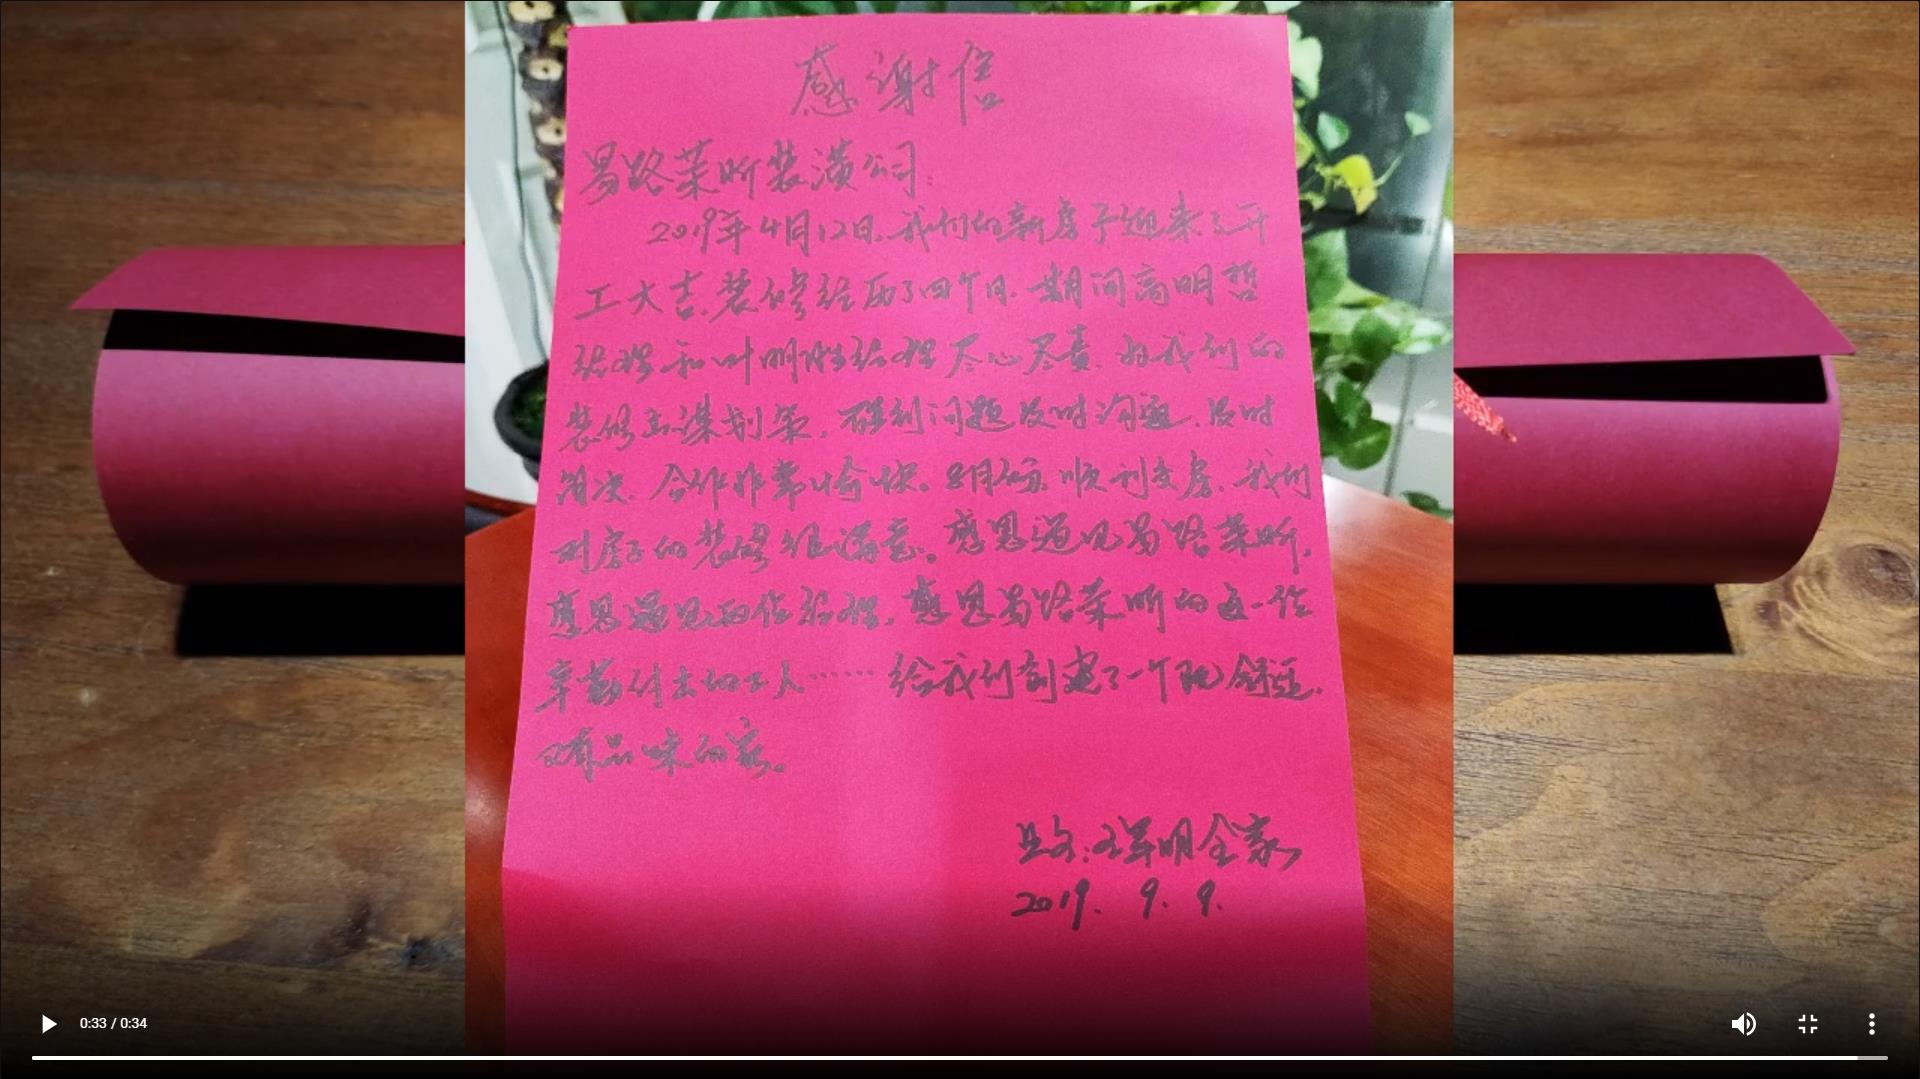 感谢信
易路莱昕装潢公司:
2019年4月12日,我们的新房子迎来了开
工大吉,装修经历了四个月,期间高明哲
经理和叶明胜经理尽心尽责,为我们的
装修出谋划策,碰到问题及时沟通,及时
解决,合作非常愉快。8月份顺利交房,我们
对房子的装修很满意。感恩遇见易路莱昕,
感恩遇见两位经理,感恩易路莱昕的每一位
辛勤付出的工人……给我们创建了一个既舒适,
又有品味的家。
业主:王军明全家
2019. 9. 9.
0:33 / 0:34